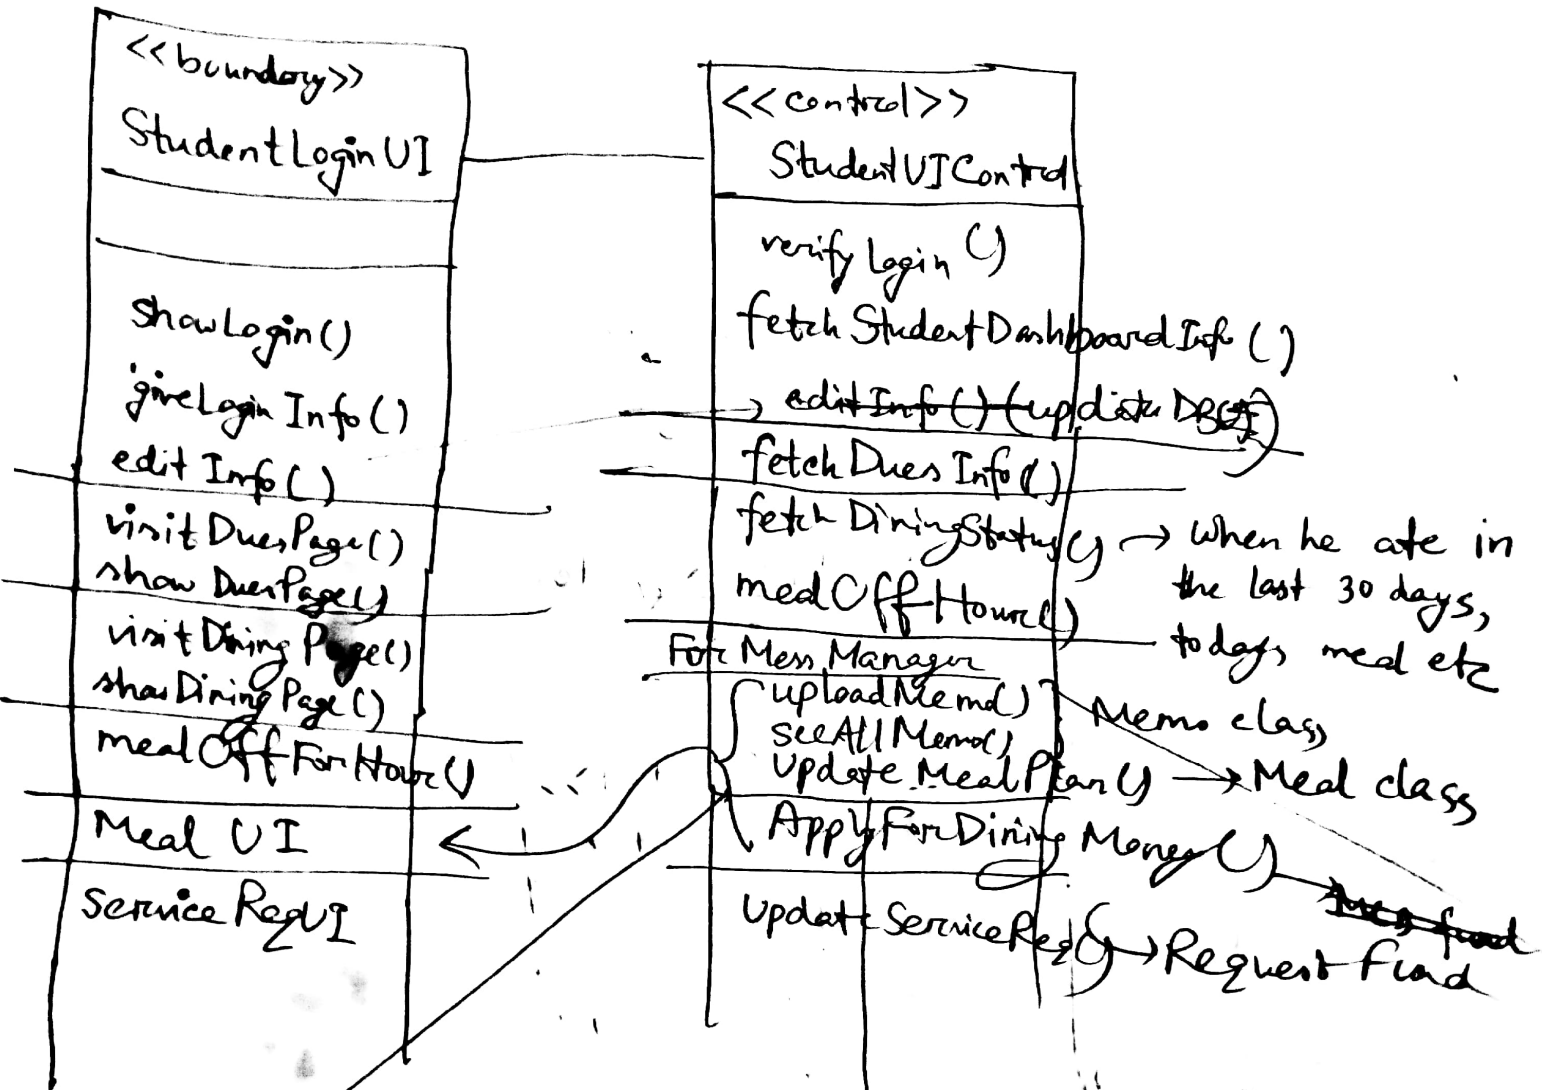 <<boundary>>
StudentLoginUI
showLogin()
giveLogin Info()
edit Info()
visitDuesPage()
show DuesPage()
visitDining Page()
showDiningPage()
mealOffForHour()
Meal UI
ServiceReqUI
<<control>>
StudentUIControl
verify Login ()
fetch StudentDashboardInfo ()
editInfo() (update DB
fetch Dues Info()
fetch DiningStatus() → when he ate in
the last 30 days,
todays meal etc
mealOffHour()
For Mess Manager
uploadMemo()
seeAllMemo()
Memo class
update MealPlan() → Meal class
ApplyForDining Money()
Update ServiceReq() → Request Fund